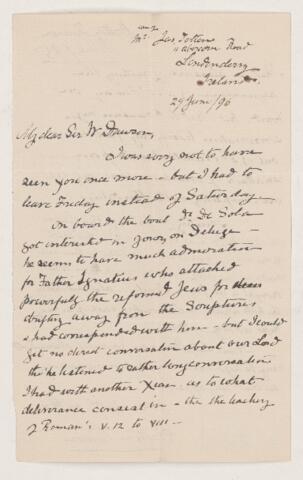 Mr. Jas Totten
Abercorn Road
Londonderry
Ireland
29 June/96
My dear Sir W Dawson,
I was sorry not to have
seen you once more - but I had to
leave Friday instead of Saturday
on board the boat Dr De Sola
got interested in yours on Deluge -
he seems to have much admiration
for Father Ignatius who attacked
powerfully the reformed Jews for
drifting away from the Scriptures
& had corresponded with him - but I could
get no direct conversation about our Lord
tho he listened to rather long conversation
I had with another Xian - as to what
deliverance consist in - the teaching
of Roman's V. 12 to VIII -